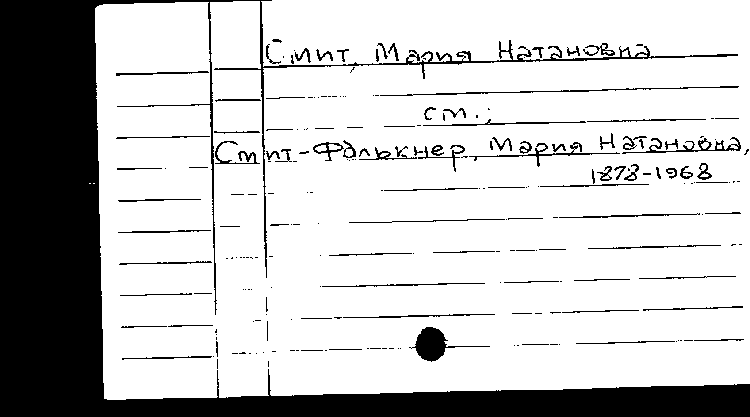 Смит, Мария Натановна
см.:
Смит-Фалькнер, Мария Натановна,
1878-1968